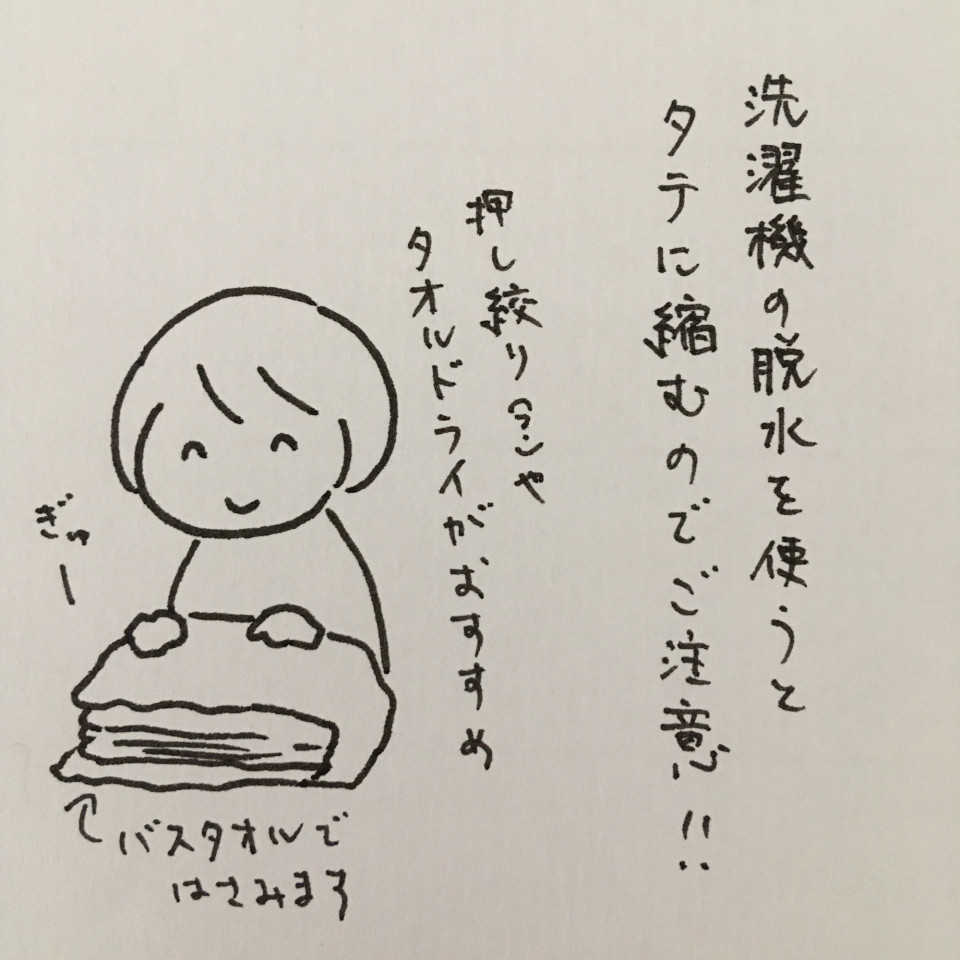 洗濯機の脱水を使うと
タテに縮むのでご注意!!
押し絞りや
タオルドライがおすすめ
ぎゅー
バスタオルで
はさみます